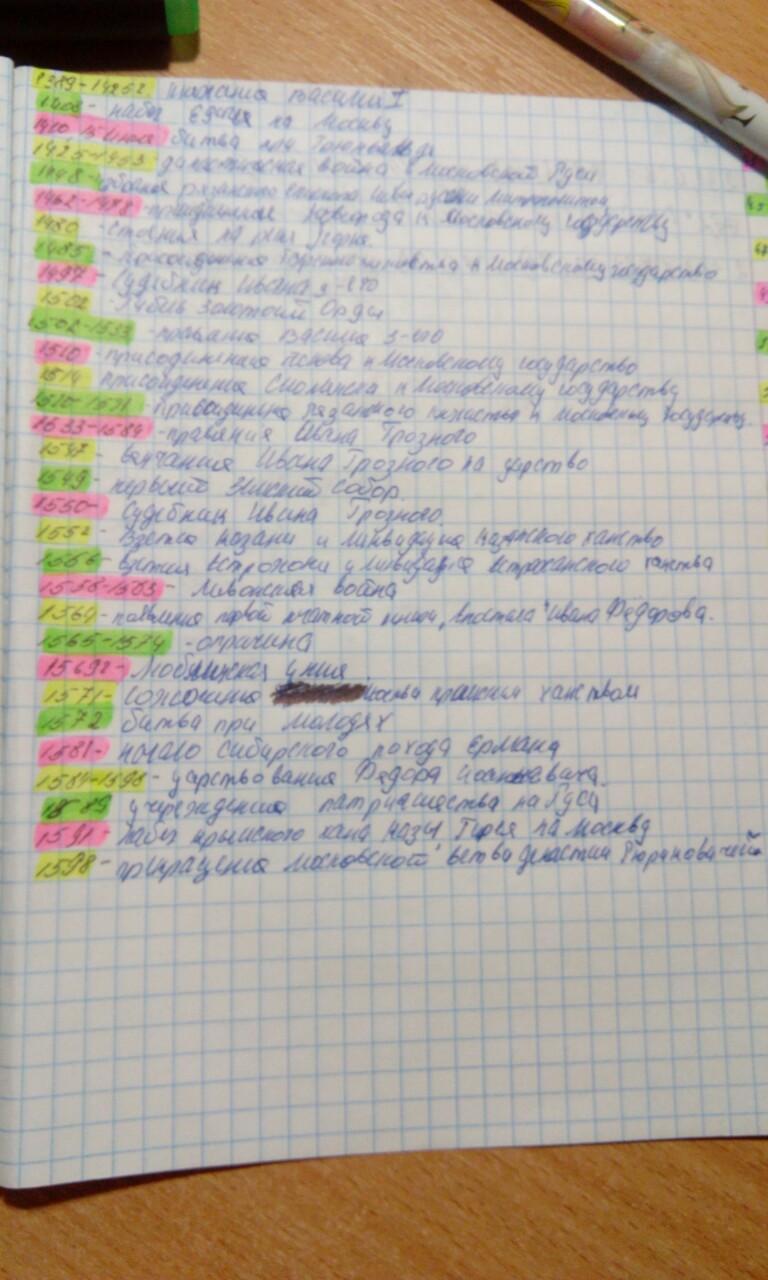 1389-1425г. княжения Василия I
1408- набег Едигея на Москву
1410, 15 июля битва при Грюнвальде
1425-1453 династическая война в Московской Руси
1448- рязанского епископа Ионы русским митрополитом
1462-1478- Новгорода к Московскому государству
1480 -стояния на реке Угра.
1485- Тверского княжества к Московскому государство
1497- Судебник Ивана 3-его
1502- Гибель Золотой Орды
1502-1533 -правления Василия 3-его
1510 -присоединения Пскова к Московскому государство
1514 присоединения Смоленска к Московскому государству
-присоединения Рязанского княжества к Московскому государству.
1533-1584 -правления Ивана Грозного
1547- венчания Ивана Грозного на царство
1549- первый Земский Собор.
1550- Судебник Ивана Грозного.
1552- Взятие Казани и ликвидация Казанского ханство
1556 взятия Астрохани и ликвидация Астраханского ханства
1558-1583- Ливонская война
1564- появления первой печатной книги „Апостола" Ивана Фёдорова.
1565-1574 -опрична
1569г- Люблинская уния
1571- Сожжения Москва крымским ханством
1572 битва при Молодях
1581- начало Сибирского похода Ермака
1584-1598- царствования Федора Иоановича.
1589 учреждения патриашества на Руси
1591- набег крымского хана Казы Гирея на Москву
1598- прекращения Московской ветви династии Рюриковичей